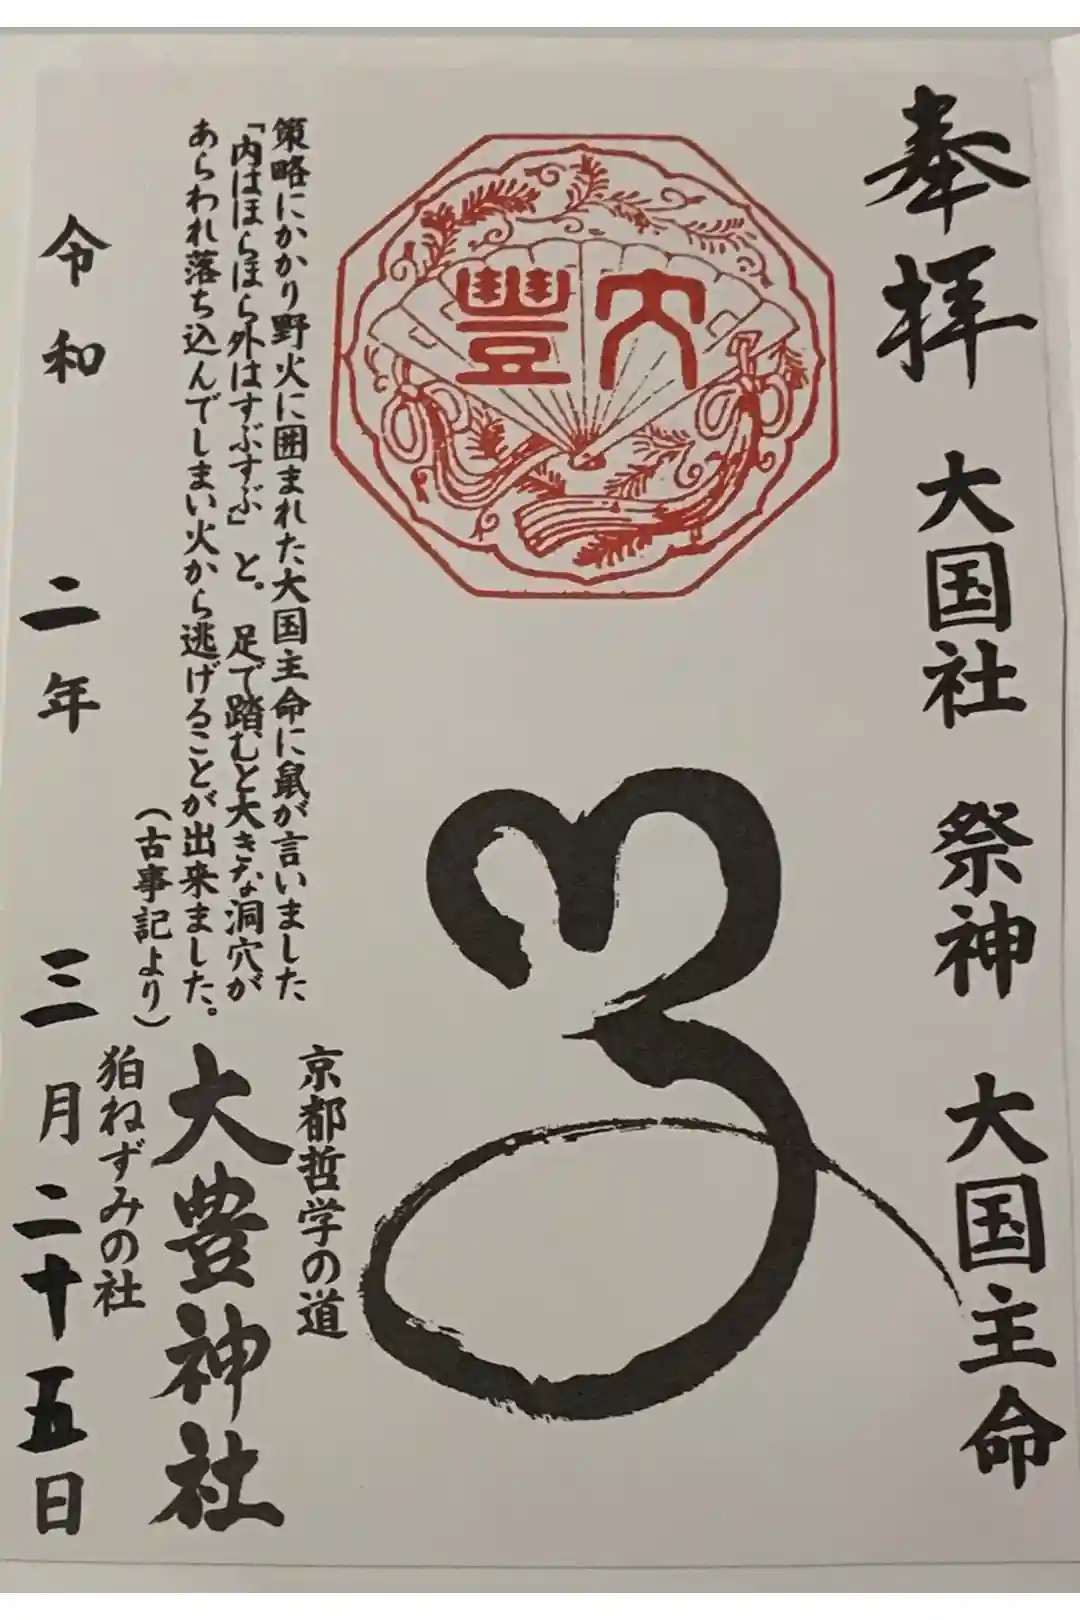 奉拝 大国社 祭神 大国主命
大豊
子
策略にかかり野火に囲まれた大国主命に鼠が言いました
「内はほらほら外はすぶすぶ」と。足で踏むと大きな洞穴が
あらわれ落ち込んでしまい火から逃げることが出来ました。
(古事記より)
京都哲学の道
大豊神社
狛ねずみの社
令和二年三月二十五日